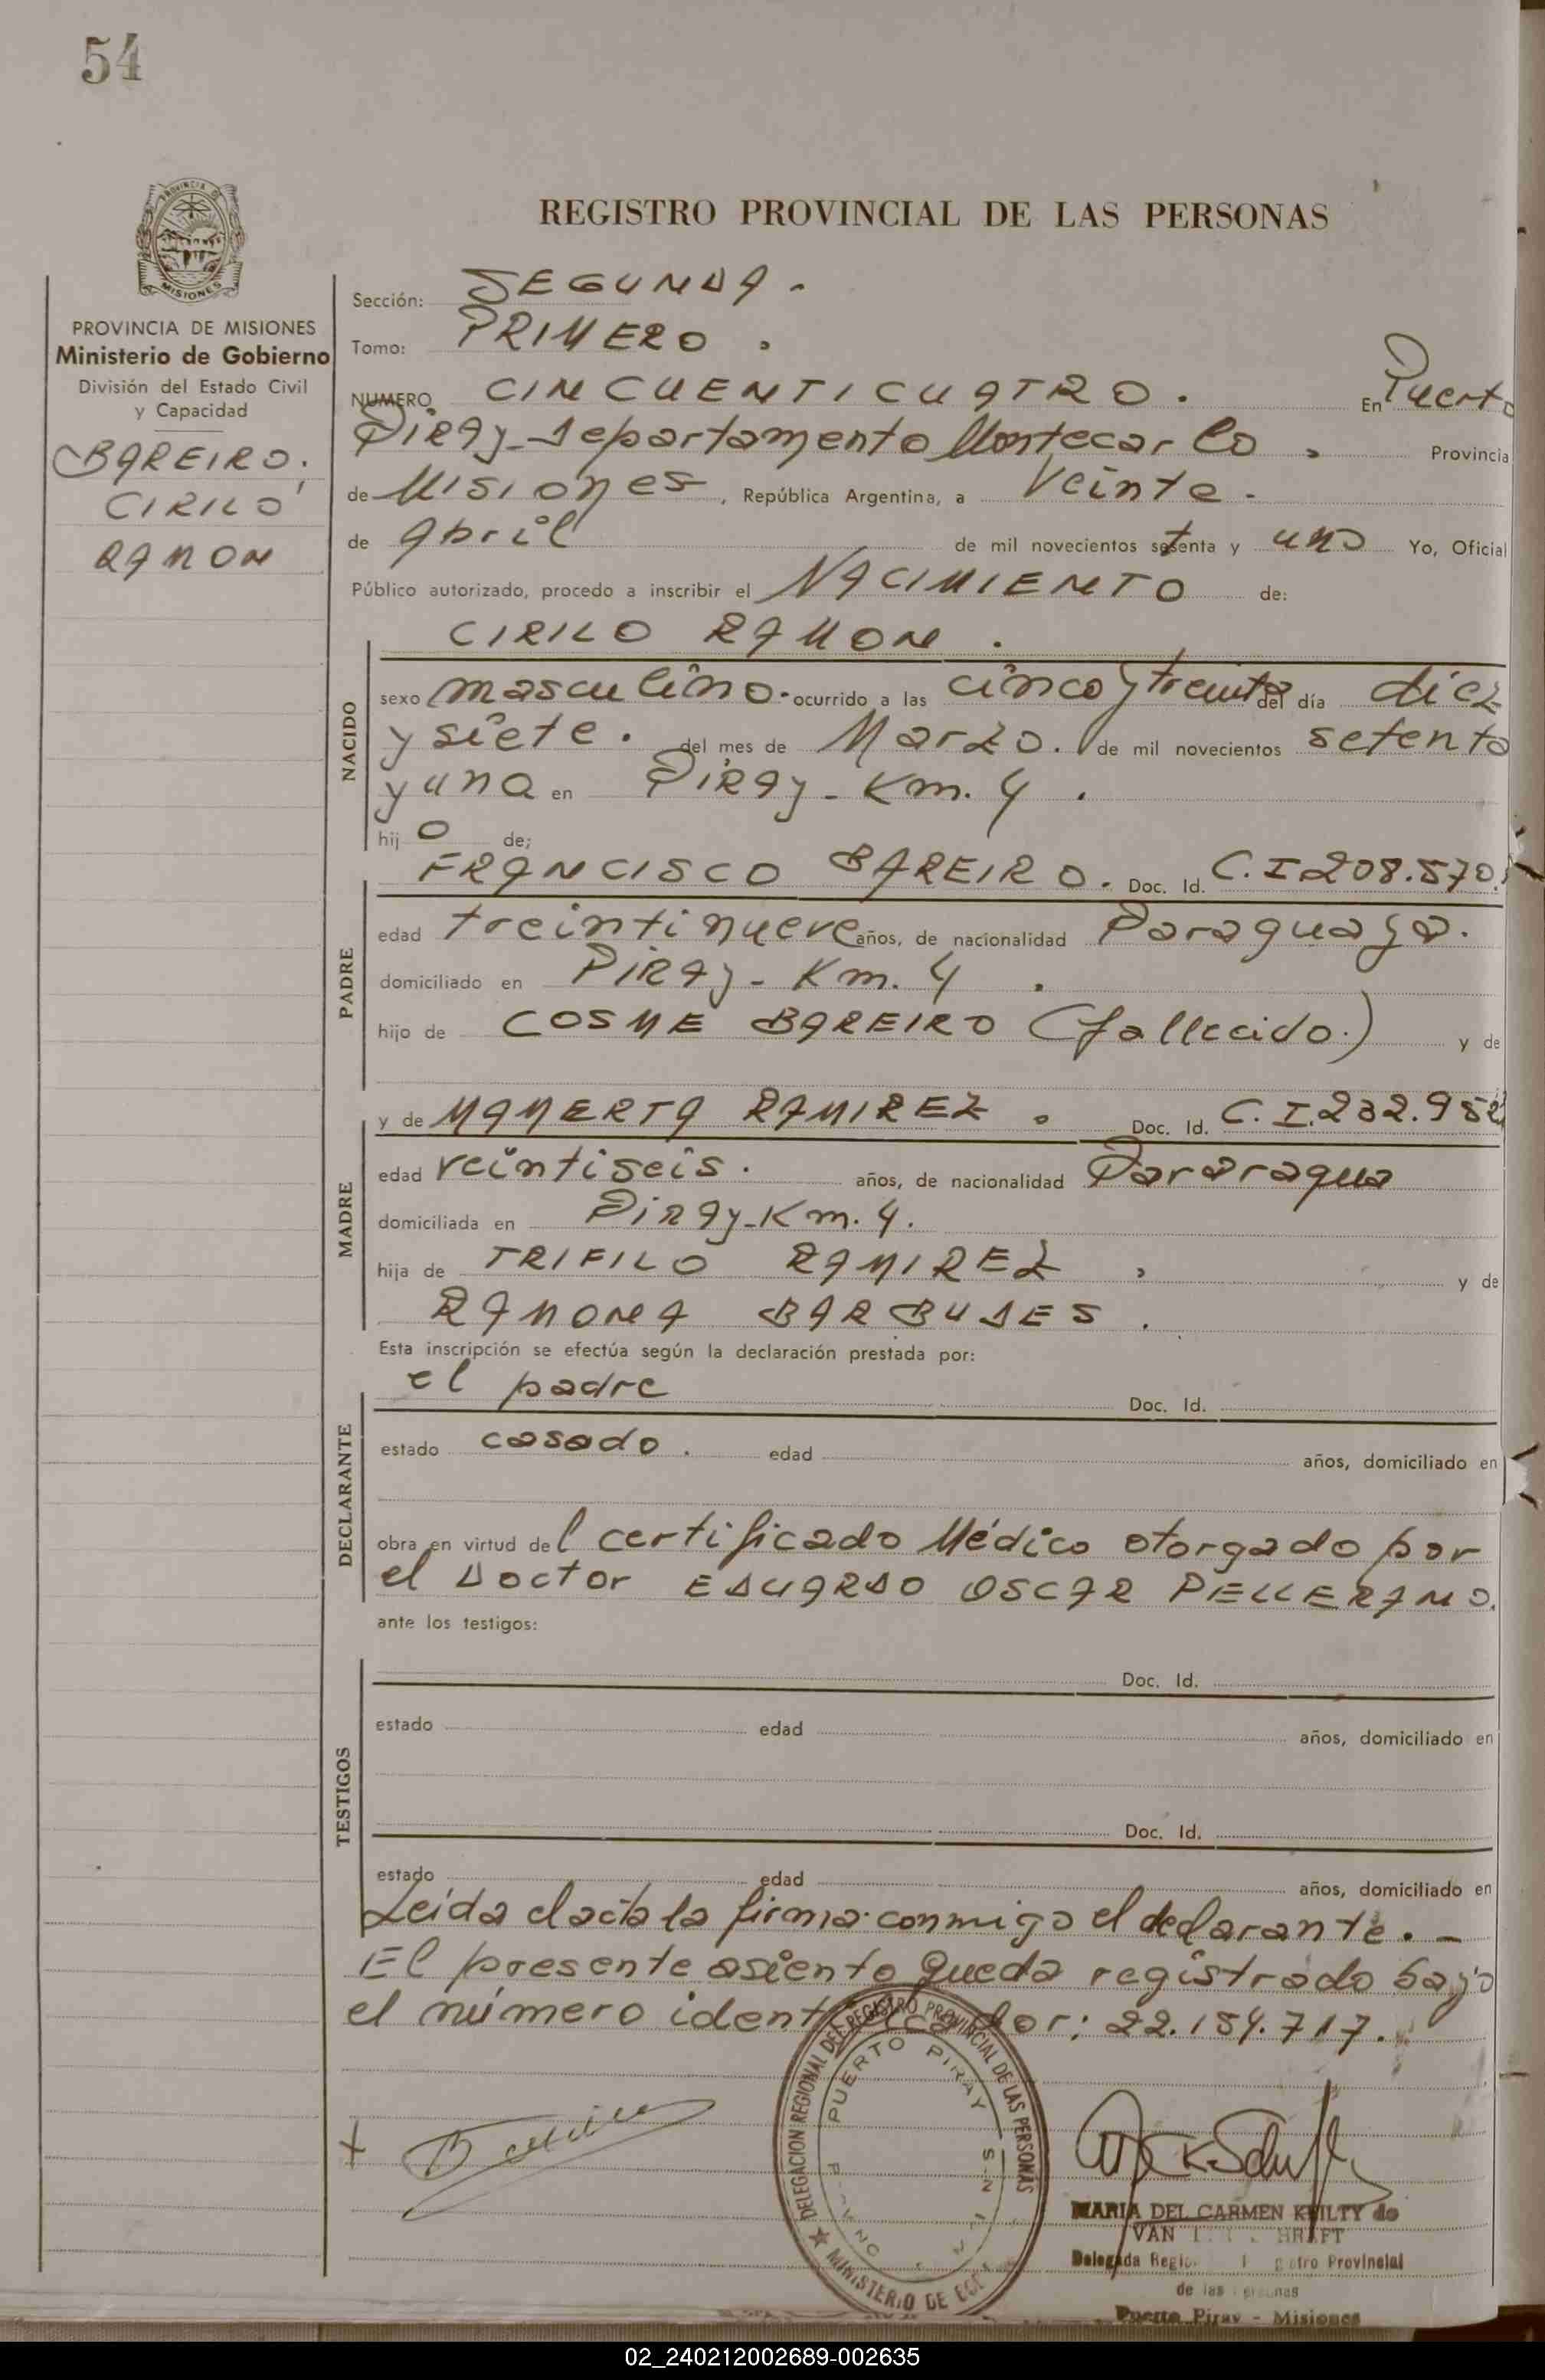 54
PROVINCIA DE
MISIONES
REGISTRO PROVINCIAL DE LAS PERSONAS
PROVINCIA DE MISIONES
Ministerio de Gobierno
División del Estado Civil
y Capacidad
BAREIRO,
CIRILO
RAMON
Sección: SEGUNDA.
Tomo: PRIMERO.
NUMERO CINCUENTICUATRO. En Puerto
Piray-Departamento Montecarlo. Provincia
de Misiones, República Argentina, a Veinte.
de abril de mil novecientos setenta y uno Yo, Oficial
Público autorizado, procedo a inscribir el NACIMIENTO de:
CIRILO RAMON.
NACIDO
sexo masculino. ocurrido a las cinco y treinta del día diez
y siete. del mes de Marzo. de mil novecientos setenta
y una en Piray-Km. 4.
hijo de;
FRANCISCO BAREIRO. Doc. Id. C.I 208.570.
PADRE
edad treintinueve años, de nacionalidad Paraguaya.
domiciliado en Piray-Km. 4.
hijo de COSME BAREIRO (fallecido.) y de
y de MAMERTA RAMIREZ. Doc. Id. C.I.232.952
MADRE
edad veintiseis. años, de nacionalidad Pararagua
domiciliada en Piray-Km. 4.
hija de TRIFILO RAMIREZ, y de
RAMONA BARBUDES.
Esta inscripción se efectúa según la declaración prestada por:
el padre Doc. Id.
DECLARANTE
estado casado. edad años, domiciliado en
obra en virtud del certificado Médico otorgado por
el Doctor EDUARDO OSCAR PELLERANO.
ante los testigos:
Doc. Id.
TESTIGOS
estado edad años, domiciliado en
Doc. Id.
estado edad años, domiciliado en
Leida el acta la firma conmigo el declarante.-
El presente asiento queda registrado bajo
el número identificador: 22.154.717.
DELEGACION REGIONAL DEL REGISTRO PROVINCIAL DE LAS PERSONAS
PUERTO PIRAY
MINISTERIO DE
MARIA DEL CARMEN KEILTY de
VAN
Delegada Provincial
de las Personas
Puerto Piray - Misiones
02_240212002689-002635